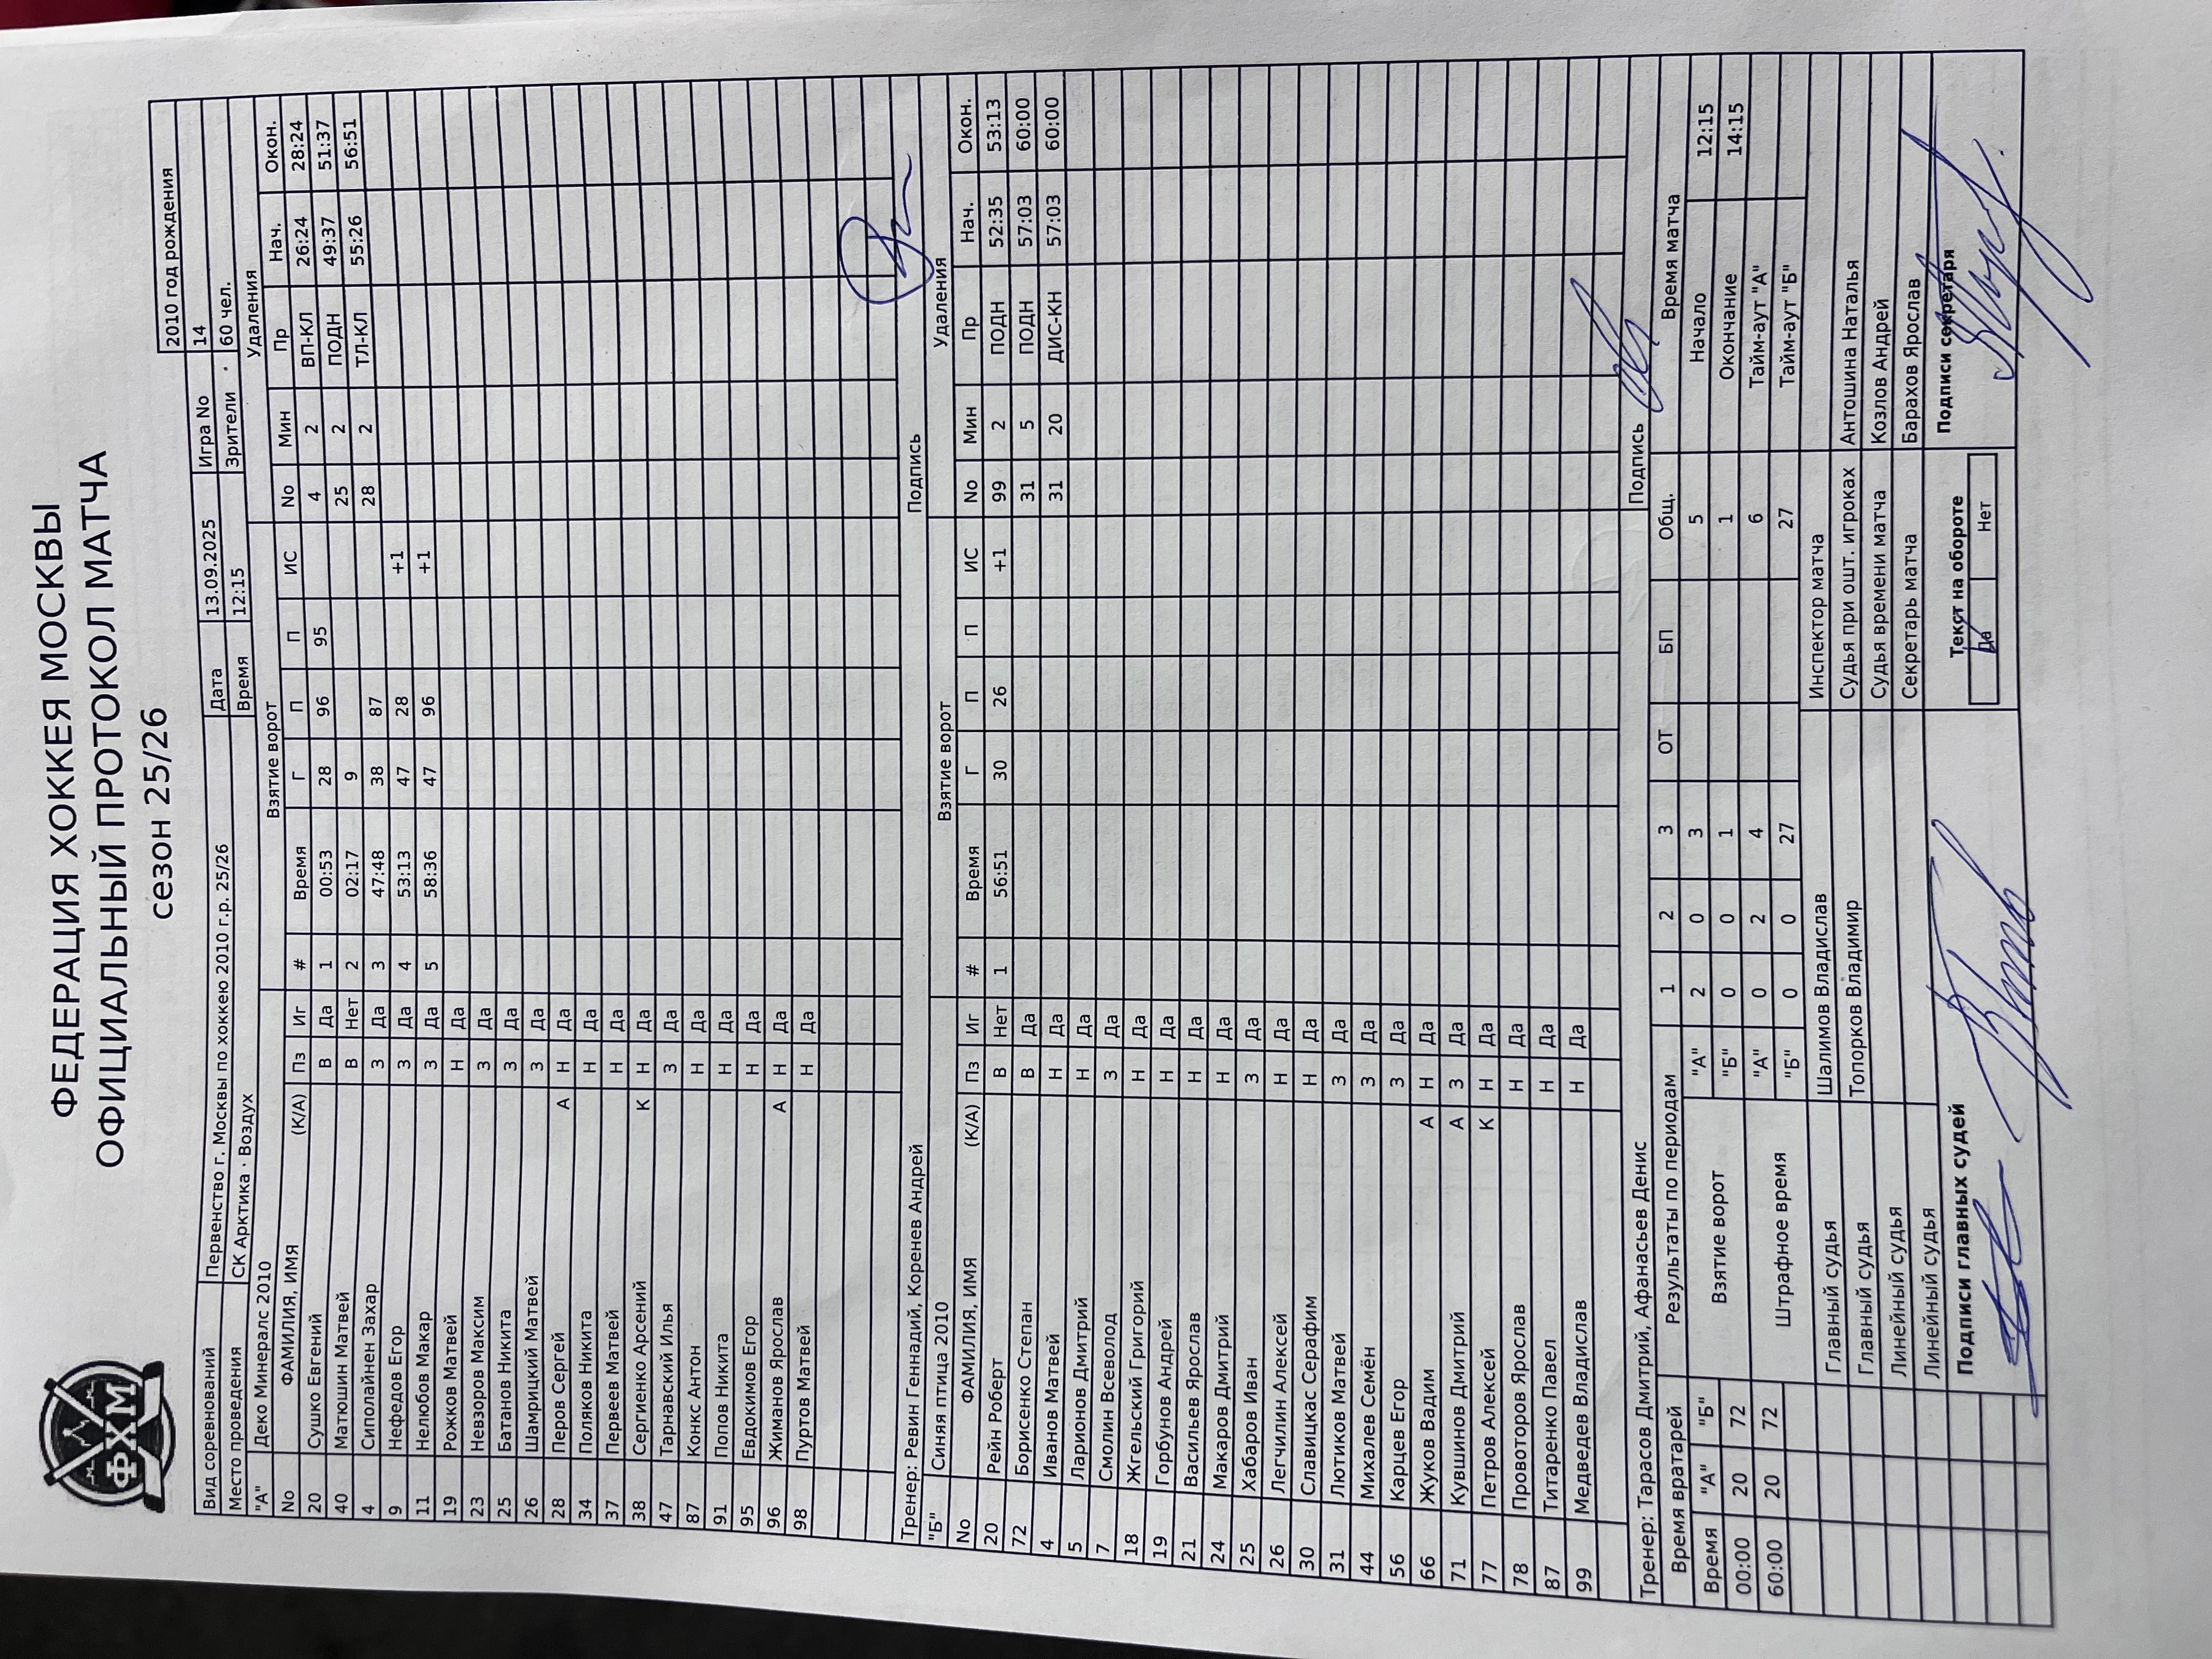 ФХМ
ФЕДЕРАЦИЯ ХОККЕЯ МОСКВЫ
ОФИЦИАЛЬНЫЙ ПРОТОКОЛ МАТЧА
сезон 25/26
2010 год рождения
Вид соревнований Первенство г. Москвы по хоккею 2010 г.р. 25/26 Дата 13.09.2025 Игра No 14
Место проведения СК Арктика · Воздух Время 12:15 Зрители 60 чел.
"А" Деко Минералс 2010 Взятие ворот Удаления
No ФАМИЛИЯ, ИМЯ (К/А) Пз Иг # Время Г П П ИС No Мин Пр Нач. Окон.
20 Сушко Евгений В Да 1 00:53 28 96 95 4 2 ВП-КЛ 26:24 28:24
40 Матюшин Матвей В Нет 2 02:17 9 25 2 ПОДН 49:37 51:37
4 Сиполайнен Захар З Да 3 47:48 38 87 28 2 ТЛ-КЛ 55:26 56:51
9 Нефедов Егор З Да 4 53:13 47 28 +1
11 Нелюбов Макар З Да 5 58:36 47 96 +1
19 Рожков Матвей Н Да
23 Невзоров Максим З Да
25 Батанов Никита З Да
26 Шамрицкий Матвей З Да
28 Перов Сергей А Н Да
34 Поляков Никита Н Да
37 Первеев Матвей Н Да
38 Сергиенко Арсений К Н Да
47 Тарнавский Илья З Да
87 Конкс Антон Н Да
91 Попов Никита Н Да
95 Евдокимов Егор Н Да
96 Жиманов Ярослав А Н Да
98 Пуртов Матвей Н Да
Тренер: Ревин Геннадий, Коренев Андрей Подпись
"Б" Синяя птица 2010 Взятие ворот Удаления
No ФАМИЛИЯ, ИМЯ (К/А) Пз Иг # Время Г П П ИС No Мин Пр Нач. Окон.
20 Рейн Роберт В Нет 1 56:51 30 26 +1 99 2 ПОДН 52:35 53:13
72 Борисенко Степан В Да 31 5 ПОДН 57:03 60:00
4 Иванов Матвей Н Да 31 20 ДИС-КН 57:03 60:00
5 Ларионов Дмитрий Н Да
7 Смолин Всеволод З Да
18 Жгельский Григорий Н Да
19 Горбунов Андрей Н Да
21 Васильев Ярослав Н Да
24 Макаров Дмитрий Н Да
25 Хабаров Иван З Да
26 Легчилин Алексей Н Да
30 Славицкас Серафим Н Да
31 Лютиков Матвей З Да
44 Михалев Семён З Да
56 Карцев Егор З Да
66 Жуков Вадим А Н Да
71 Кувшинов Дмитрий А З Да
77 Петров Алексей К Н Да
78 Провоторов Ярослав Н Да
87 Титаренко Павел Н Да
99 Медведев Владислав Н Да
Тренер: Тарасов Дмитрий, Афанасьев Денис Подпись
Время вратарей Результаты по периодам 1 2 3 ОТ БП Общ. Время матча
Время "А" "Б" Взятие ворот "А" 2 0 3 5 Начало 12:15
00:00 20 72 "Б" 0 0 1 1 Окончание 14:15
60:00 20 72 Штрафное время "А" 0 2 4 6 Тайм-аут "А"
"Б" 0 0 27 27 Тайм-аут "Б"
Главный судья Шалимов Владислав Инспектор матча
Главный судья Топорков Владимир Судья при ошт. игроках Антошина Наталья
Линейный судья Судья времени матча Козлов Андрей
Линейный судья Секретарь матча Барахов Ярослав
Подписи главных судей Текст на обороте Подписи секретаря
Да Нет